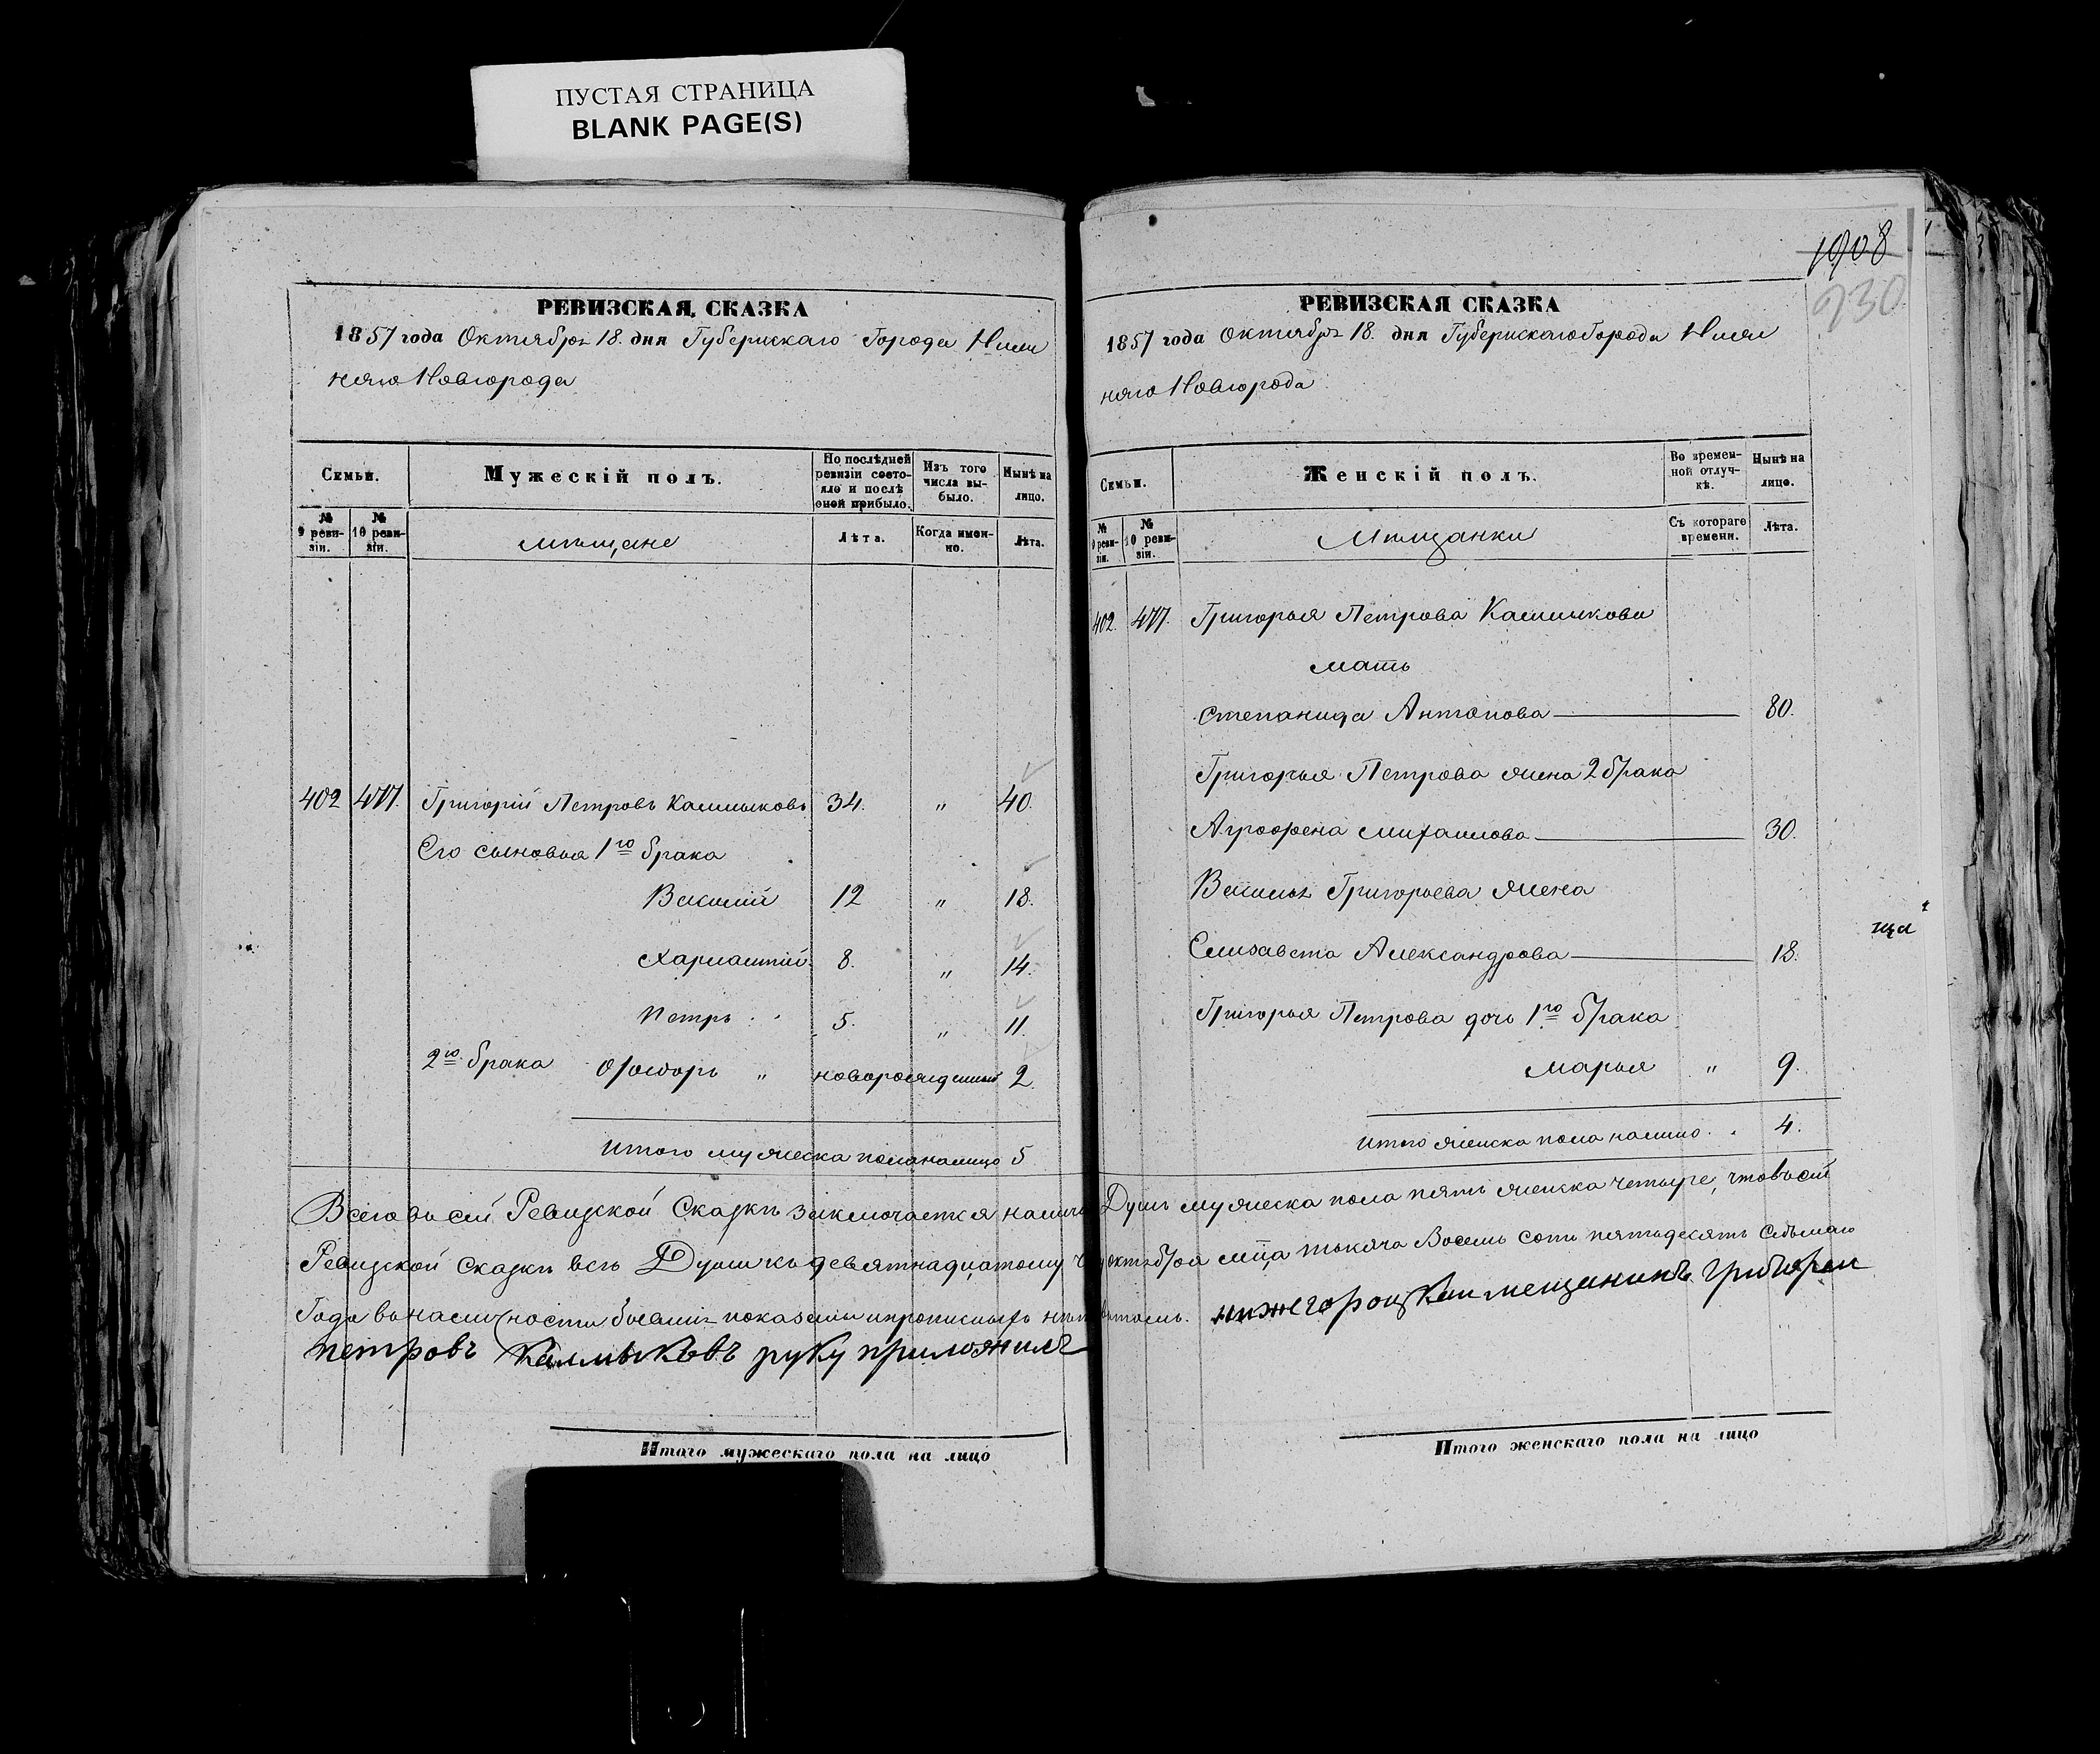 ПУСТАЯ СТРАНИЦА
BLANK PAGE(S)
РЕВИЗСКАЯ СКАЗКА
1857 года Октября 18. дня Губернскаго Города Ниж
няго Новгорода
Семьи.
Мужескій полъ.
По послѣдней ревизіи состояло и послѣ оной прибыло.
Изъ того числа выбыло.
Нынѣ на лицо.
№ 9 ревизіи.
№ 10 ревизіи.
мѣщане
Лѣта.
Когда именно.
Лѣта.
402 477. Григорій Петровъ Калмыковъ 34. " 40.
Его сыновья 1го брака
Василій 12 " 18.
Харлампій 8. " 14.
Петръ 5. " 11.
2го брака Ѳедоръ " новорожденный 2.
Итого мужеска пола налицо 5
Итого мужескаго пола на лицо
1908
930
РЕВИЗСКАЯ СКАЗКА
1857 года Октября 18. дня Губернскаго Города Ниж
няго Новгорода
Семьи.
Женскій полъ.
Во временной отлучкѣ.
Нынѣ на лицо.
№ 9 ревизіи.
№ 10 ревизіи.
Мѣщанки
Съ котораго времени.
Лѣта.
402. 477. Григорья Петрова Калмыкова
мать
Степанида Антонова 80.
Григорья Петрова жена 2 брака
Аграфена Михаилова 30.
Василья Григорьева жена
Елизавета Александрова 18.
Григорья Петрова дочь 1го брака
Марья " 9.
Итого женска пола налицо 4.
Всего въ сей Ревизской Сказкѣ заключается налицо Душъ мужеска пола пять женска четыре, что въ сей
Ревизской сказкѣ всѣ Души къ девятнадцатому октября мца тысяча Восемь сотъ пятьдесятъ седьмаго
Года въ наличности бывшіе показаны и прописныхъ нѣтъ въ томъ. нижегороцкаи мещанинъ григореи
петровъ Калмыковъ руку приложилъ
Итого женскаго пола на лицо